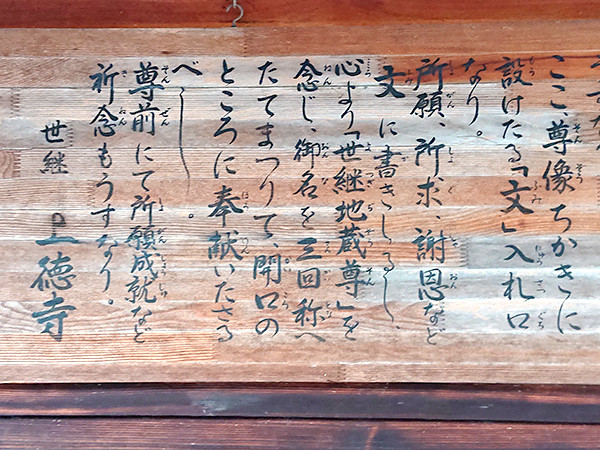 ここ、尊像ちかきに、
設けたる「文」入れ口
なり。
所願、所求、謝恩など
文に書きしるし、
心より「世継地蔵尊」を
念じ、御名を三回称へ
たてまつりて、開口の
ところに奉献いたさる
べし。
尊前にて所願成就など
祈念もうすなり。
世継 上徳寺